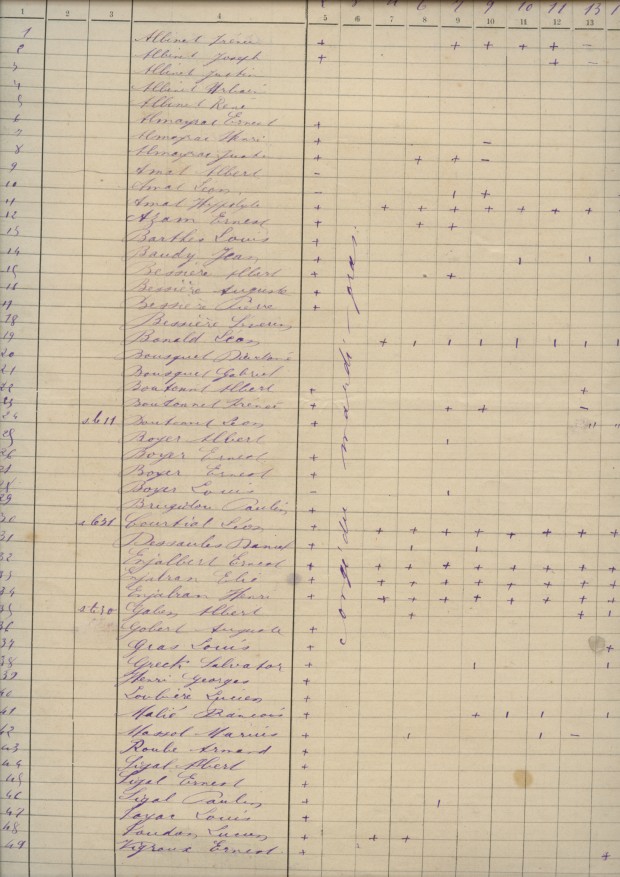 1 2 3 4 5 6 7 8 9 10 11 12 13
1 Albinet Irénée + + + + + -
2 Albinet Joseph + + -
3 Albinet Justin
4 Albinet Urbain
5 Albinet René
6 Almayrac Ernest +
7 Almayrac Henri + -
8 Almayrac Justin + + + -
9 Amat Albert -
10 Amat Léon - ı +
11 Amat Hyppolyte + + + + + + + +
12 Azam Ernest + + +
13 Barthes Louis +
14 Baudy Jean + ı ı
15 Bessière Albert + - +
16 Bessière Auguste +
17 Bessière Pierre +
18 Bessière Séverin
19 Bonald Léon + ı ı ı ı ı ı ı
20 Bousquet
21 Bousquet Gabriel
22 Boutonnet Albert + +
23 Boutonnet Irénée + + + -
24 Boutonnet Léon + " "
25 Boyer Albert ı
26 Boyer Ernest +
27 Boyer Ernest +
28 Boyer Louis - ı
29 Brugidou Paulin +
30 Courtial Léon + + + + + + + +
31 Dessaules + ı ı
32 Enjalbert Ernest + + + + + + + +
33 Enjalran Elie + + + + + + + +
34 Enjalran Henri + + + + + + + +
35 Galen Albert + + + ı
36 Gobert Auguste +
37 Gras Louis + +
38 Greck Salvator + ı ı
39 Henri Georges +
40 Loubière Lucien +
41 Malié François + + ı ı ı
42 Massol Marius + ı ı -
43 Roube Armand +
44 Sigal Albert +
45 Sigal Ernest +
46 Sigal Paulin + ı
47 Louis +
48 Lucien + + +
49 Vigroux Ernest + +
Congé du mardi-gras.